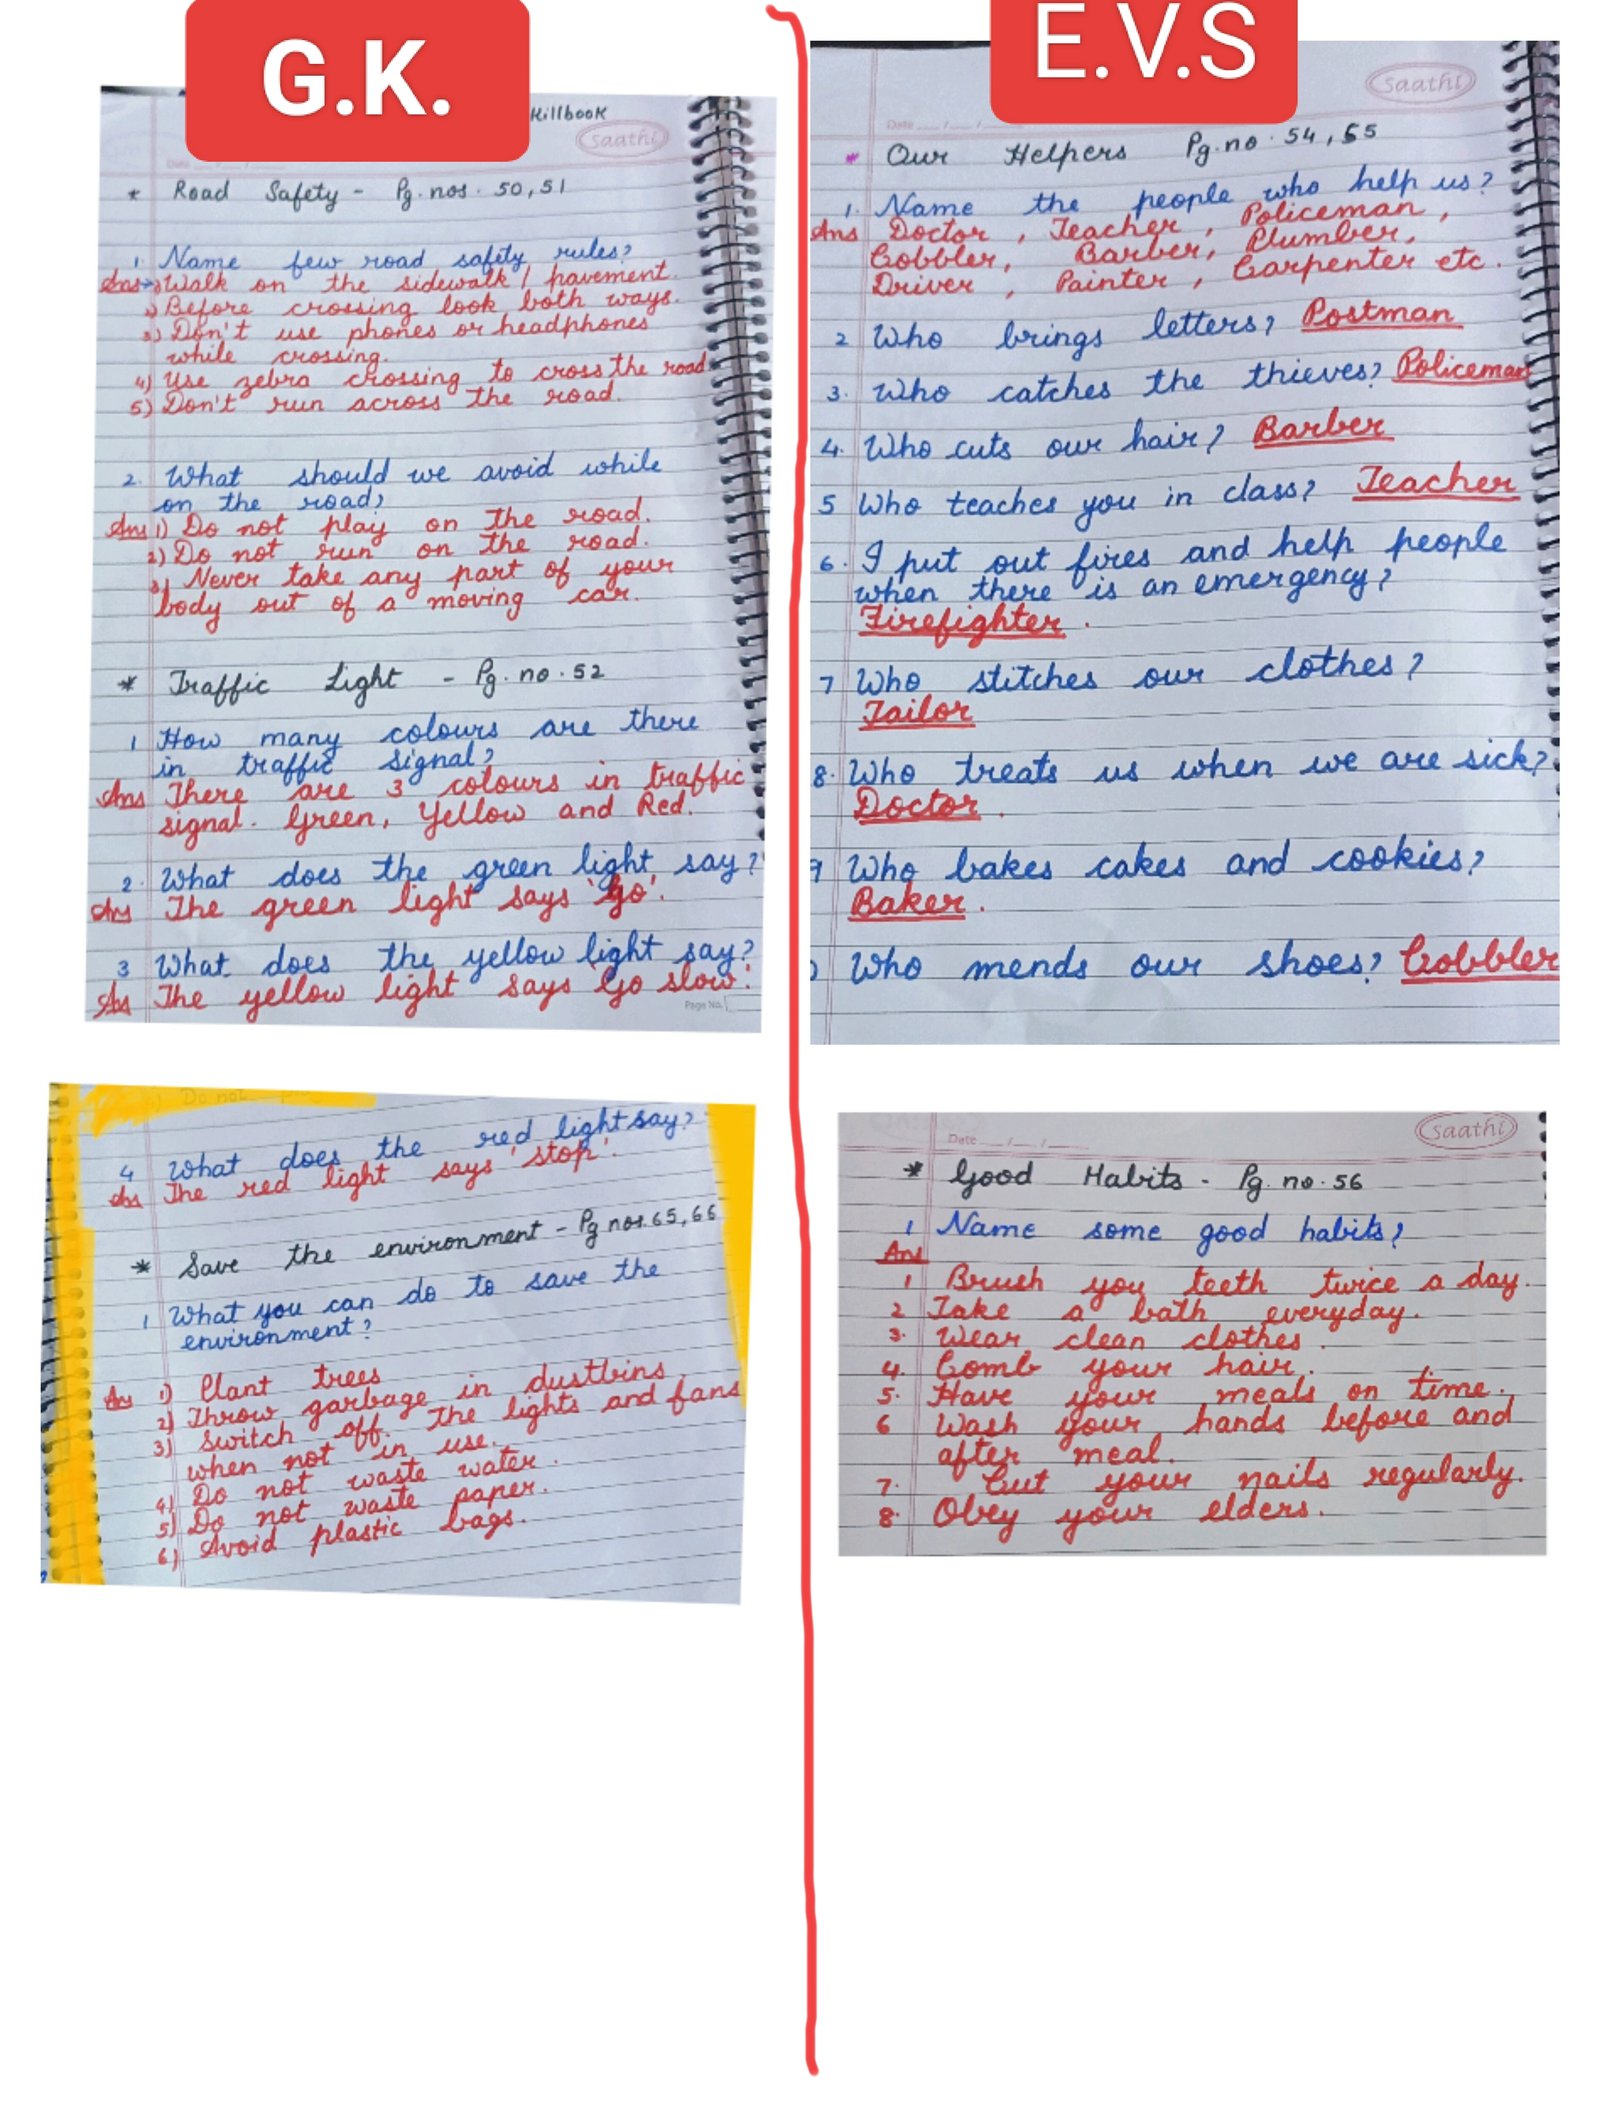 G.K.
killbook
saathi
* Road Safety - Pg. nos. 50, 51
1. Name few road safety rules?
Ans→1) Walk on the sidewalk / pavement.
2) Before crossing look both ways.
3) Don't use phones or headphones
while crossing.
4) Use zebra crossing to cross the road
5) Don't run across the road.
2. What should we avoid while
on the road?
Ans 1) Do not play on the road.
2) Do not run on the road.
3) Never take any part of your
body out of a moving car.
* Traffic Light - Pg. no. 52
1 How many colours are there
in traffic signal?
Ans There are 3 colours in traffic
signal. Green, Yellow and Red.
2. What does the green light say?
Ans The green light says 'go'.
3 What does the yellow light say?
Ans The yellow light says 'Go slow'.
Page No.
4 What does the red light say?
Ans The red light says 'stop'.
* Save the environment - Pg nos. 65, 66
1 What you can do to save the
environment?
Ans 1) Plant trees
2) Throw garbage in dustbins.
3) Switch off the lights and fans
when not in use.
4) Do not waste water.
5) Do not waste paper.
6) Avoid plastic bags.
E.V.S
saathi
Date
* Our Helpers Pg. no. 54, 55
1. Name the people who help us?
Ans Doctor, Teacher, Policeman,
Cobbler, Barber, Plumber,
Driver, Painter, Carpenter etc.
2 Who brings letters? Postman
3. Who catches the thieves? Policeman
4. Who cuts our hair? Barber
5 Who teaches you in class? Teacher
6. I put out fires and help people
when there is an emergency?
Firefighter.
7 Who stitches our clothes?
Tailor
8. Who treats us when we are sick?
Doctor.
9 Who bakes cakes and cookies?
Baker.
Who mends our shoes? Cobbler
saathi
Date
* Good Habits - Pg. no. 56
1 Name some good habits?
Ans
1 Brush you teeth twice a day.
2 Take a bath everyday.
3. Wear clean clothes.
4. Comb your hair.
5. Have your meals on time.
6 Wash your hands before and
after meal.
7. Cut your nails regularly.
8. Obey your elders.